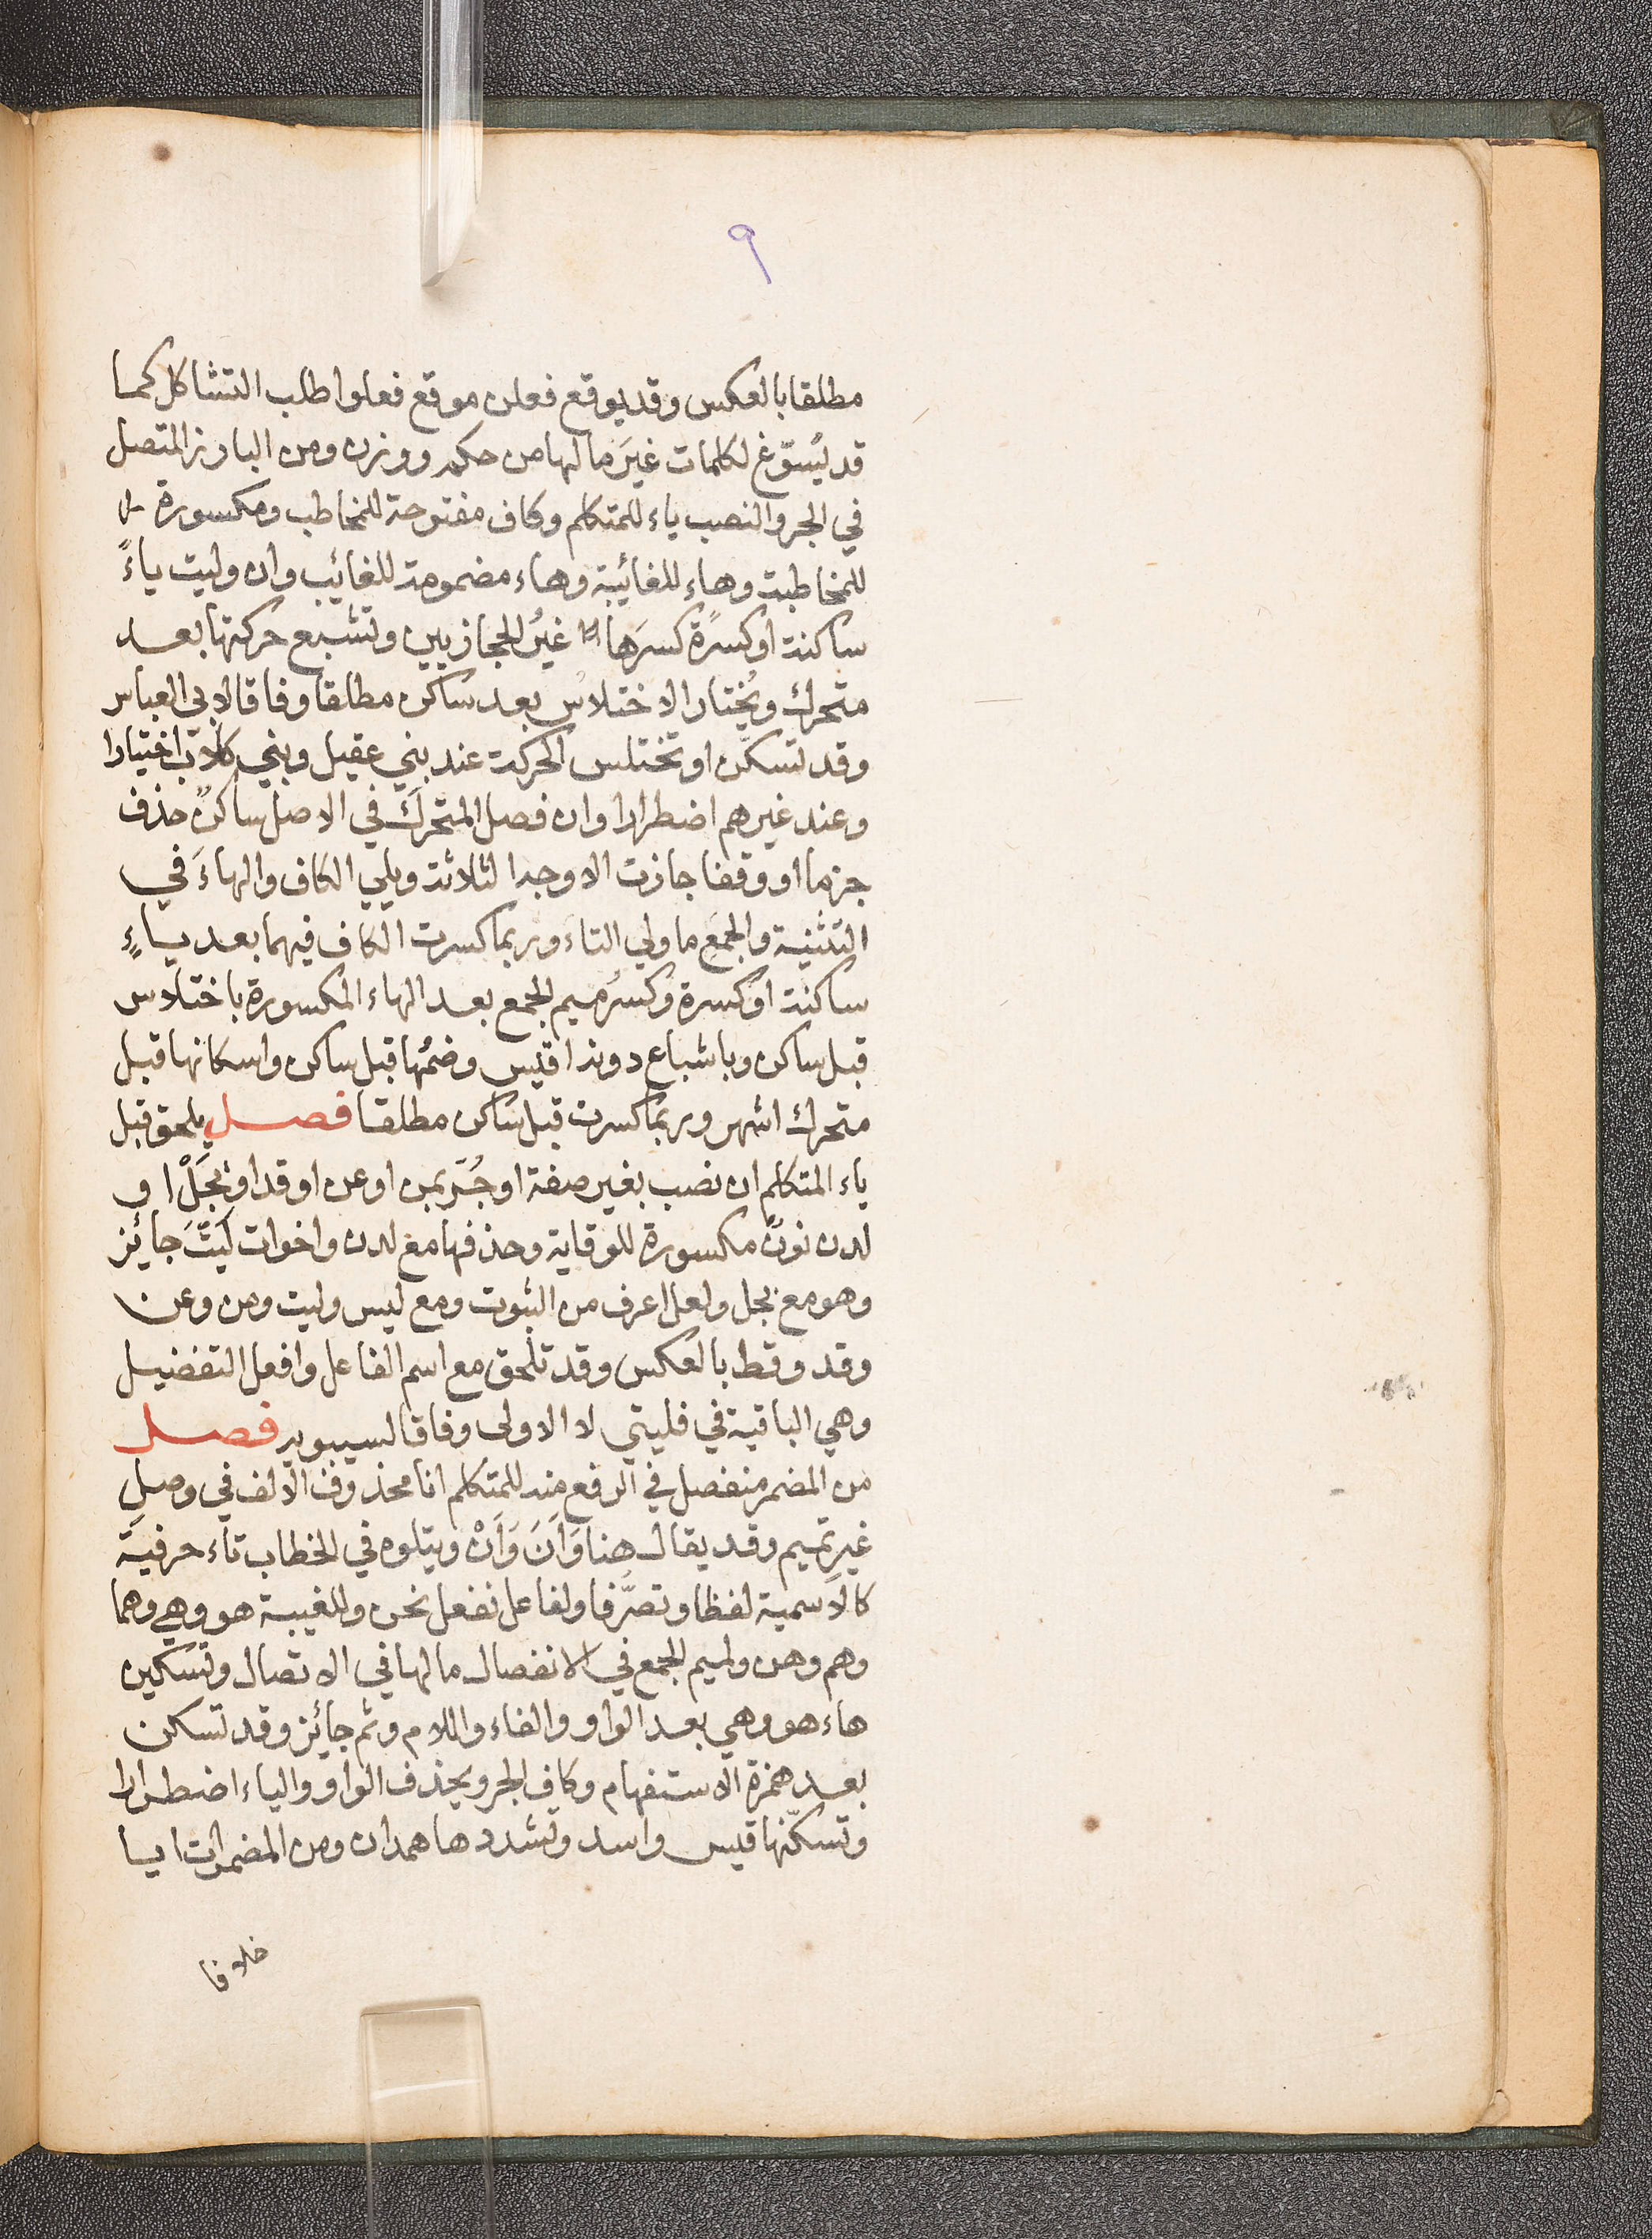 ٩
مطلقا بالعكس وقد يوقع فعلن موقع فعلوا طلب التشاكل كما
قد يُسوّغ لكلمات غيرَ ما لها من حكم ووزن ومن البارز المتصل
في الجر والنصب ياء للمتكلم وكاف مفتوحة للمخاطب ومكسورة
للمخاطبة وهاء للغائبة وهاء مضمومة للغائب وان وليت ياءً
ساكنة او كسرةً كسرَها غيرُ الحجازيين وتشبع حركتها بعد
متحرك ويُختار الاختلاس بعد ساكن مطلقا وفاقا لابي العباس
وقد تسكّن او تختلس الحركة عند بني عقيل وبني كلاب اختيارا
وعند غيرهم اضطرارا وان فصل المتحركَ في الاصل ساكنٌ حذف
جزما او وقفا جازت الاوجه الثلاثة ويلي الكاف والهاءَ في
التثنية والجمعِ ما ولي التاءَ وربما كسرت الكاف فيهما بعد ياءٍ
ساكنة او كسرة وكسرُ ميم الجمع بعد الهاء المكسورة باختلاس
قبل ساكن وباشباع دونه اقيس وضمُها قبل ساكن واسكانها قبل
متحرك اشهر وربما كسرت قبل ساكن مطلقا فصل يلحق قبل
ياء المتكلم ان نصب بغير صفة او جُرّ بمن او عن او قد او بَجَلْ او
لدن نونٌ مكسورة للوقاية وحذفها مع لدن واخوات لَيْتَ جائز
وهو مع بجل ولعل اعرف من الثبوت ومع ليس وليت ومن وعن
وقد وقط بالعكس وقد تلحق مع اسم الفاعل وافعل التفضيل
وهي الباقية في فليتي لا الاولى وفاقا لسيبويه فصل
من المضمر منفصل في الرفع منه للمتكلم انا محذوف الالف في وصلِ
غيرِ تميم وقد يقال هنا وَاَنَ وَاَنْ ويتلوه في الخطاب تاء حرفية
كالاسمية لفظا وتصرّفا ولفاعل نفعل نحن وللغيبة هو وهي وهما
وهم وهن ولميم الجمع في الانفصال ما لها في الاتصال وتسكين
هاء هو وهي بعد الواو والفاء واللام وثم جائز وقد تسكن
بعد همزة الاستفهام وكاف الجر ويحذف الواو والياء اضطرارا
وتسكّنها قيس واسد وتشددها همدان ومن المضمرات ايا
خلافا